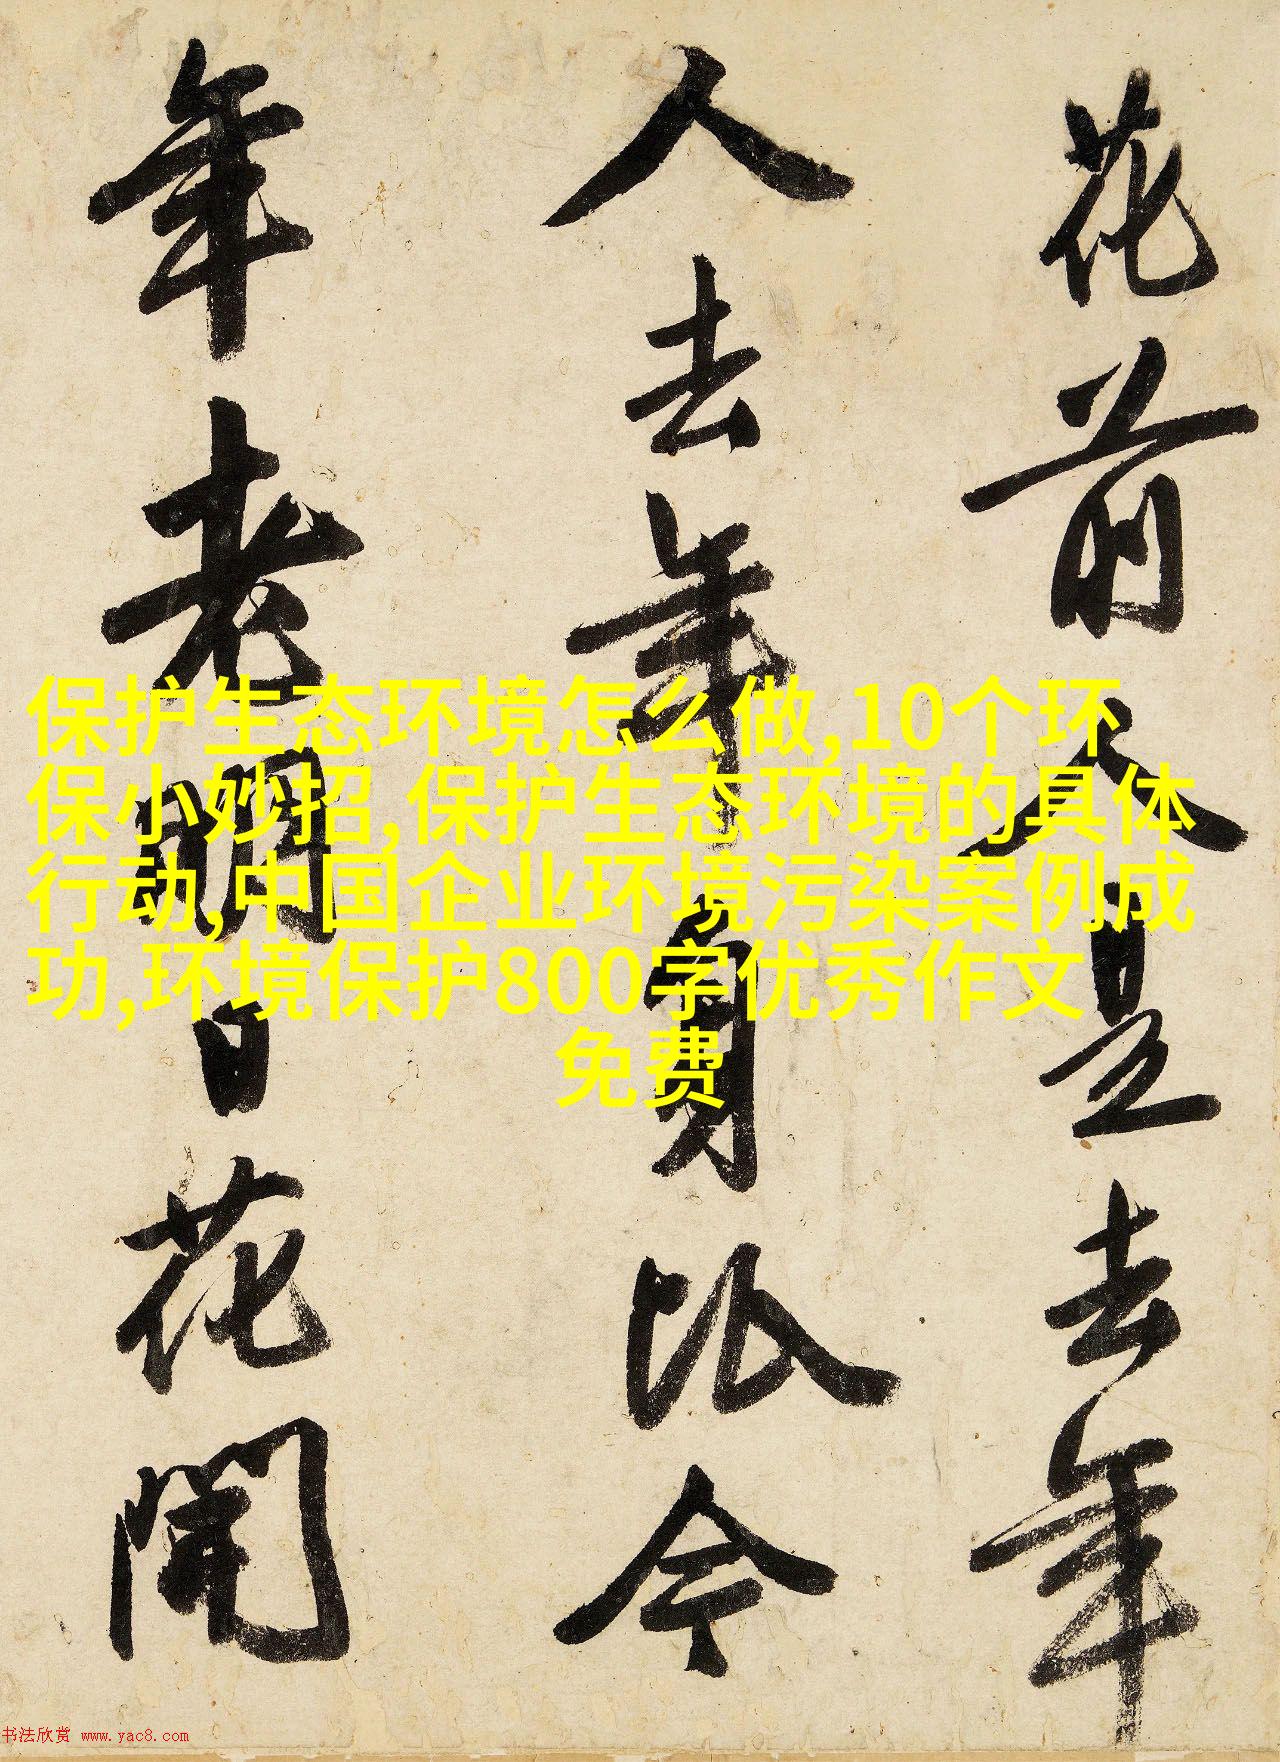 花前人是去年
人去年身比今
年老明日花開
保护生态环境怎么做,10个环
保小妙招,保护生态环境的具体
行动,中国企业环境污染案例成
功,环境保护800字优秀作文
免费
书法欣赏 www.yac8.com